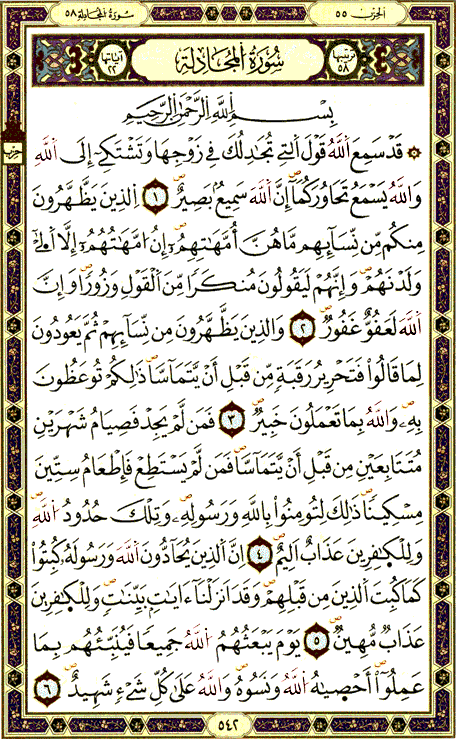 الحزب ٥٥
سُورَةُ المُجَادلة ٥٨
ترتيبها ٥٨
سُورَةُ الْمُجَادِلَةِ
آياتها ٢٢
بِسْمِ اللَّهِ الرَّحْمَٰنِ الرَّحِيمِ
۞ قَدْ سَمِعَ اللَّهُ قَوْلَ الَّتِي تُجَادِلُكَ فِي زَوْجِهَا وَتَشْتَكِي إِلَى اللَّهِ
وَاللَّهُ يَسْمَعُ تَحَاوُرَكُمَا إِنَّ اللَّهَ سَمِيعٌ بَصِيرٌ ١ الَّذِينَ يَظَّهَّرُونَ
مِنكُم مِّن نِّسَائِهِم مَّا هُنَّ أُمَّهَاتِهِمْ إِنْ أُمَّهَاتُهُمْ إِلَّا الَّٰۓ
وَلَدْنَهُمْ وَإِنَّهُمْ لَيَقُولُونَ مُنكَرًا مِّنَ الْقَوْلِ وَزُورًا وَإِنَّ
اللَّهَ لَعَفُوٌّ غَفُورٌ ٢ وَالَّذِينَ يَظَّهَّرُونَ مِن نِّسَائِهِمْ ثُمَّ يَعُودُونَ
لِمَا قَالُوا فَتَحْرِيرُ رَقَبَةٍ مِّن قَبْلِ أَنْ يَّتَمَاسَّا ذَٰلِكُمْ تُوعَظُونَ
بِهِ وَاللَّهُ بِمَا تَعْمَلُونَ خَبِيرٌ ٣ فَمَن لَّمْ يَجِدْ فَصِيَامُ شَهْرَيْنِ
مُتَتَابِعَيْنِ مِن قَبْلِ أَنْ يَّتَمَاسَّا فَمَن لَّمْ يَسْتَطِعْ فَإِطْعَامُ سِتِّينَ
مِسْكِينًا ذَٰلِكَ لِتُومِنُوا بِاللَّهِ وَرَسُولِهِ وَتِلْكَ حُدُودُ اللَّهِ
وَلِلْكَٰفِرِينَ عَذَابٌ اَلِيمٌ ٤ إِنَّ الَّذِينَ يُحَادُّونَ اللَّهَ وَرَسُولَهُ كُبِتُوا
كَمَا كُبِتَ الَّذِينَ مِن قَبْلِهِمْ وَقَدَ اَنزَلْنَا ءَايَٰتٍ بَيِّنَٰتٍ وَلِلْكَٰفِرِينَ
عَذَابٌ مُّهِينٌ ٥ يَوْمَ يَبْعَثُهُمُ اللَّهُ جَمِيعًا فَيُنَبِّئُهُم بِمَا
عَمِلُوا أَحْصَيٰهُ اللَّهُ وَنَسُوهُ وَاللَّهُ عَلَىٰ كُلِّ شَيْءٍ شَهِيدٌ ٦
٥٤٢